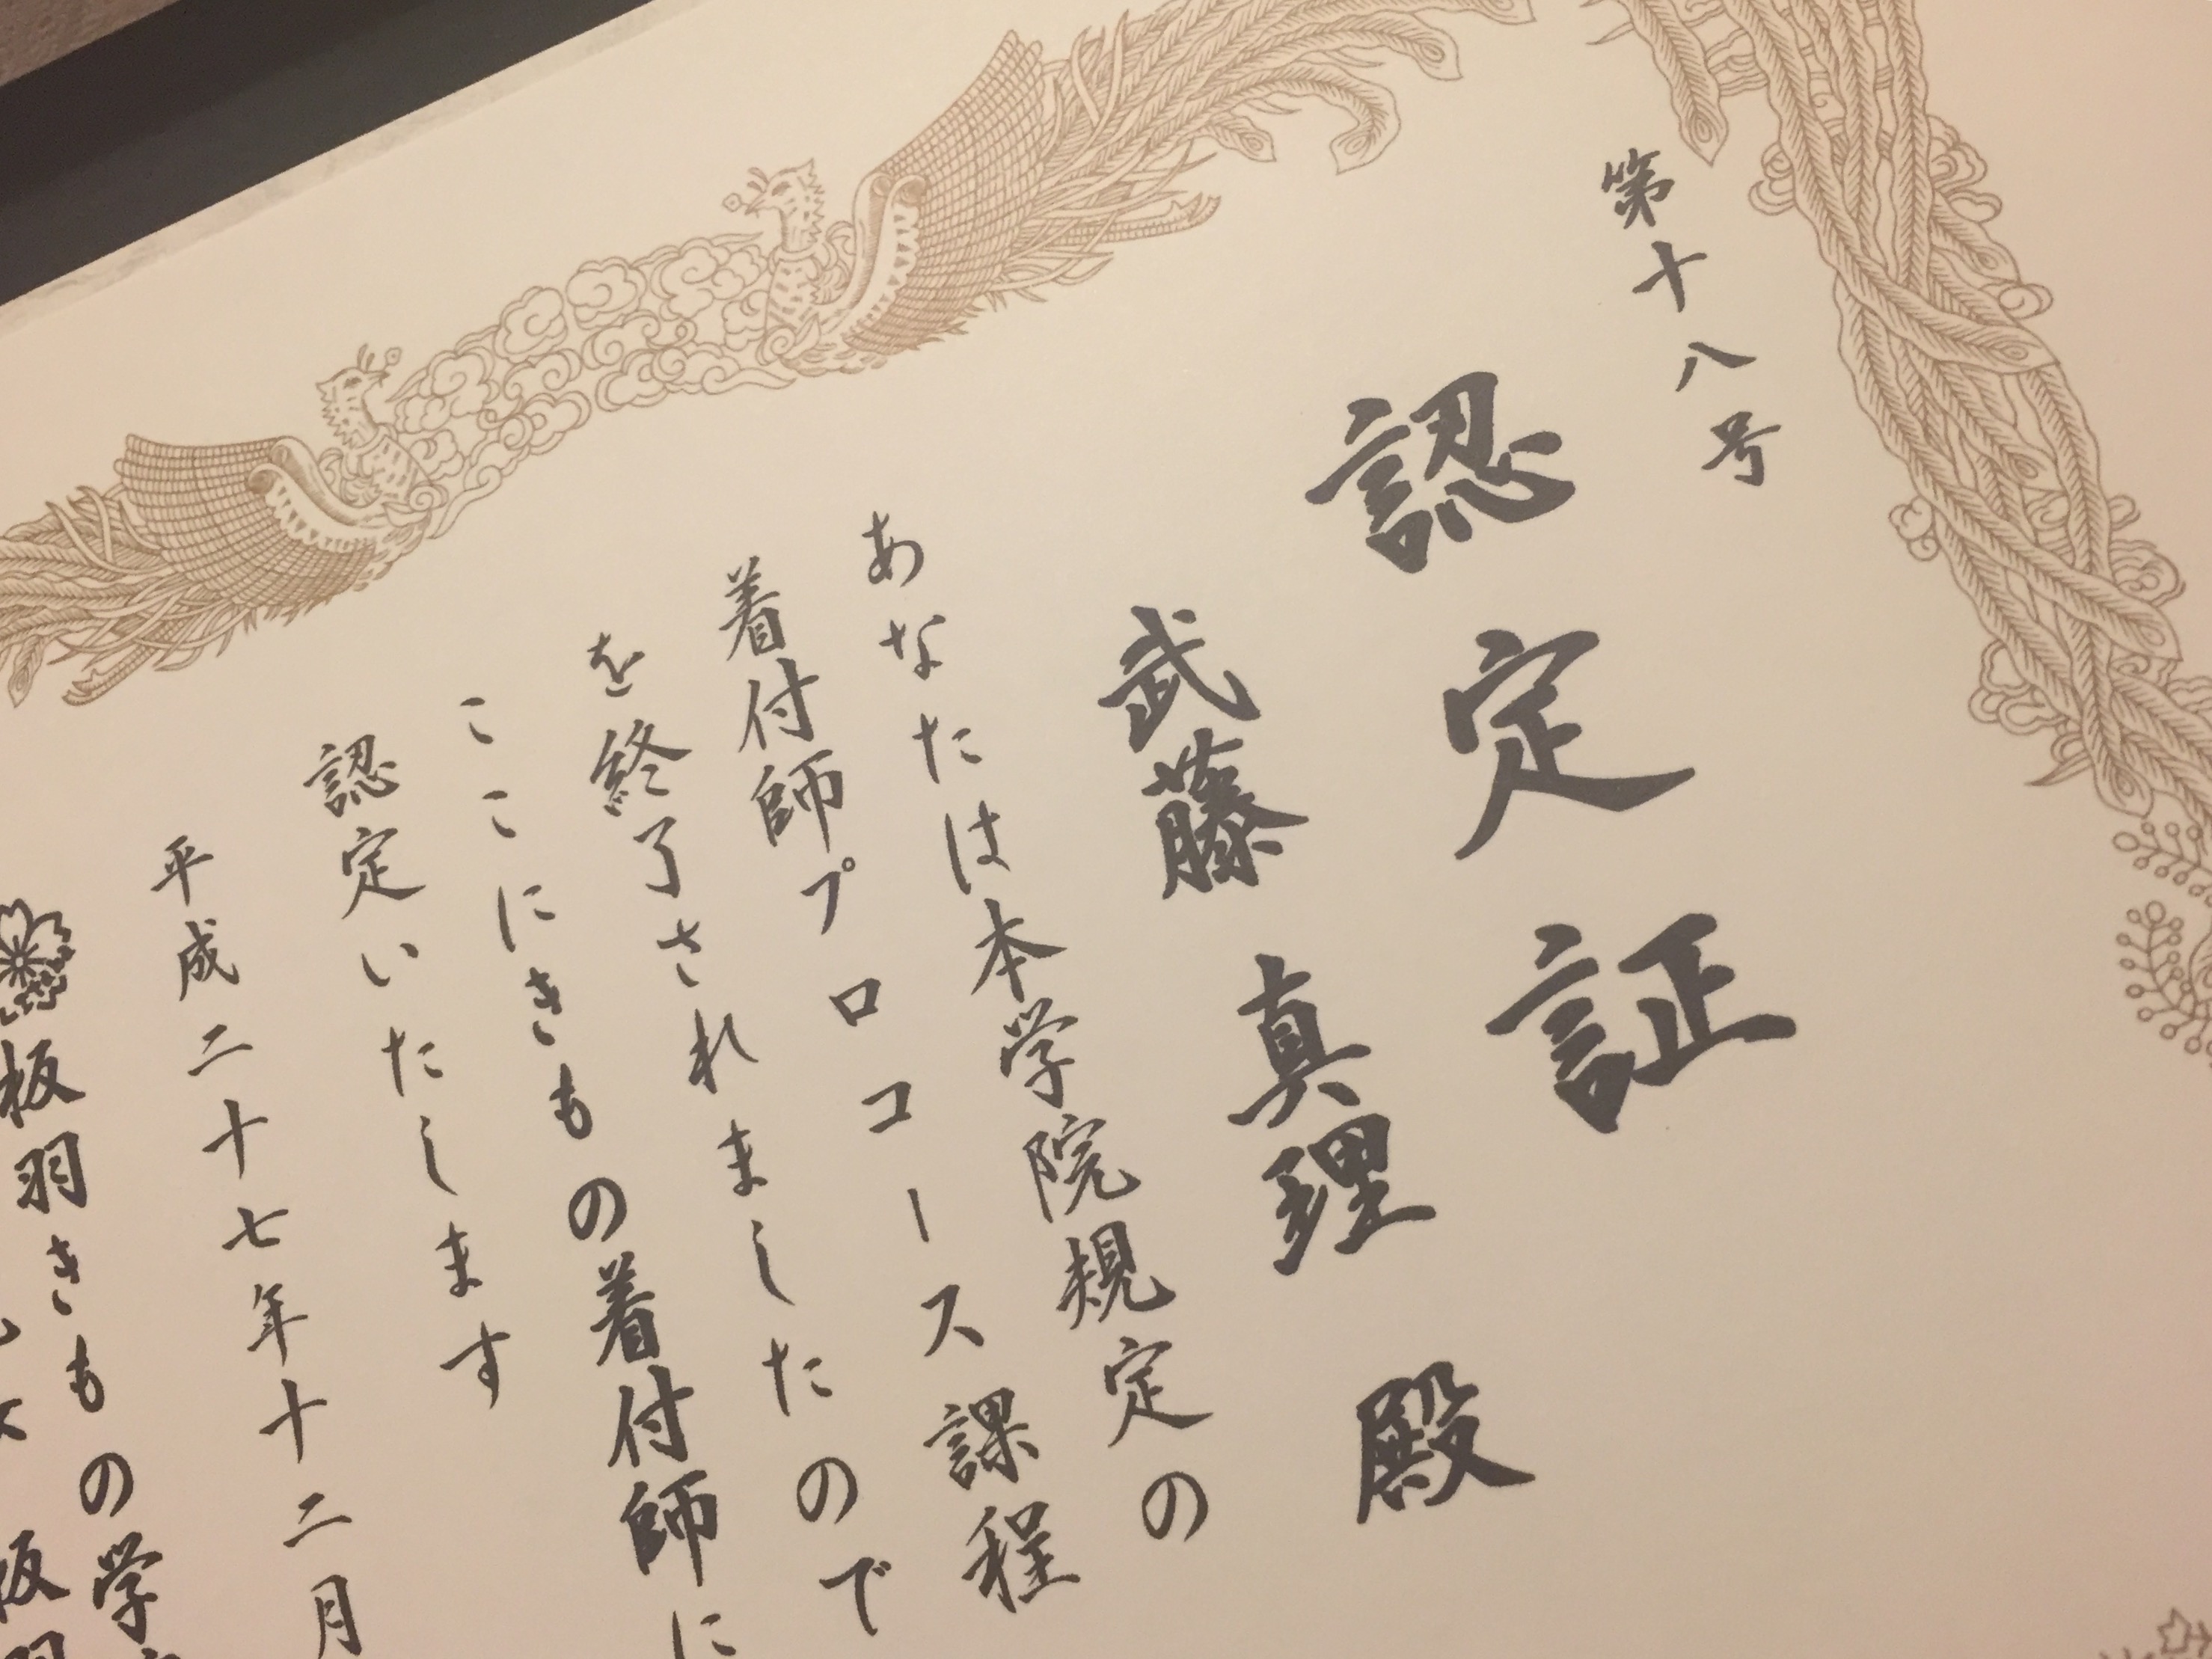 第十八号
認定証
武藤 真理 殿
あなたは本学院規定の
着付師プロコース課程
を終了されましたので
ここにきもの着付師に
認定いたします
平成二十七年十二月
板羽きもの学
板羽